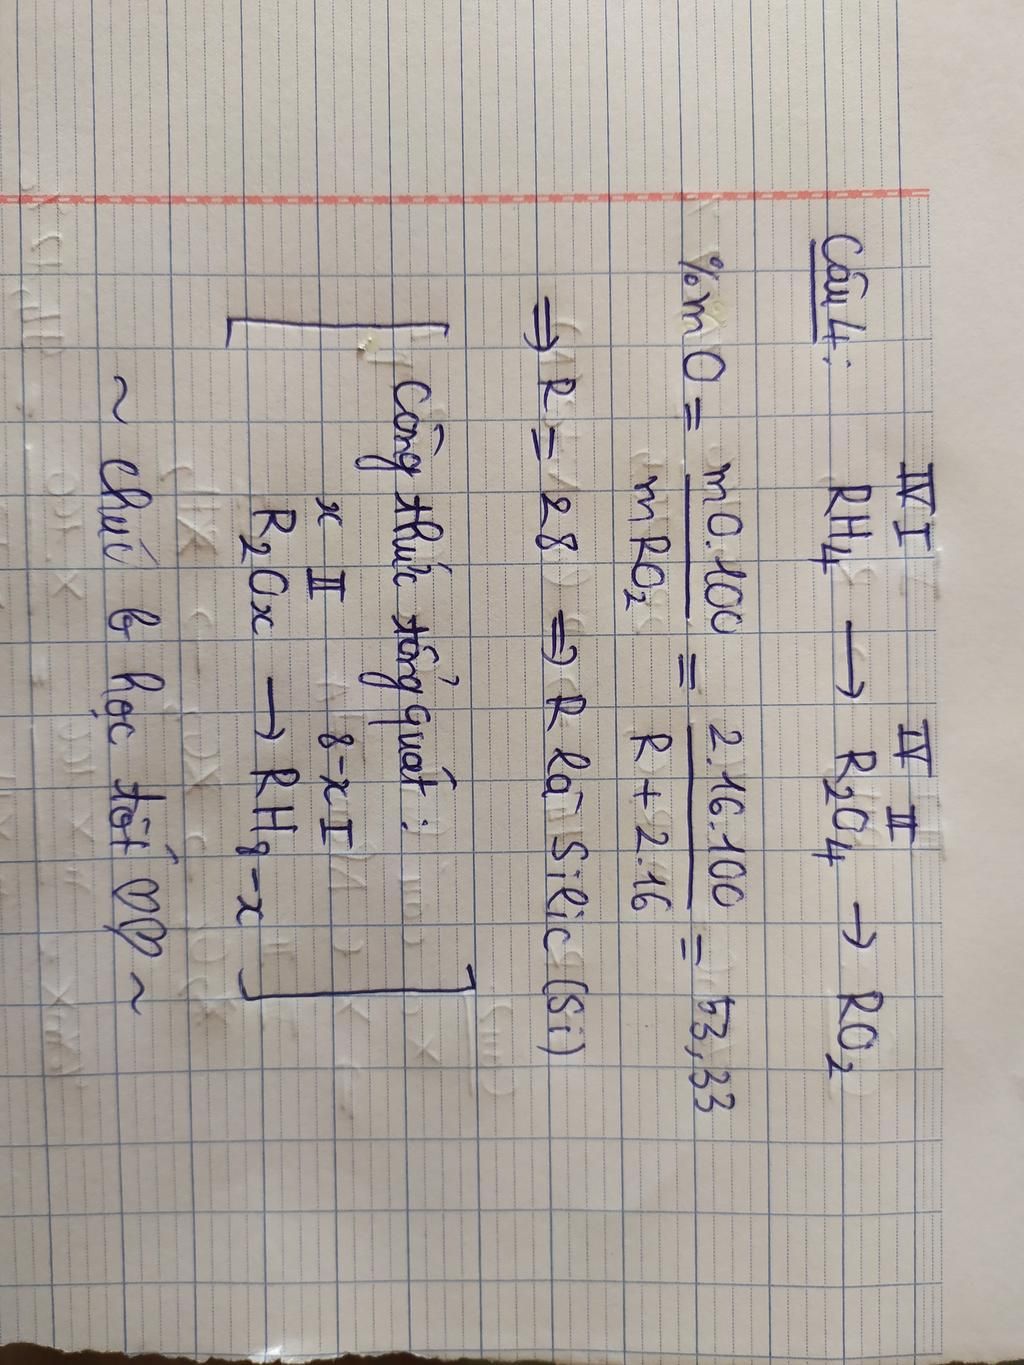 IV I IV II
Câu 4: RH4 → R2O4 → RO2
%mO = mO.100 / mRO2 = 2.16.100 / R + 2.16 = 53,33
⇒ R = 28 ⇒ R là Silic (Si)
Công thức tổng quát:
x II 8-x I
R2Ox → RH8-x
~ chúc b học tốt ♡♡ ~